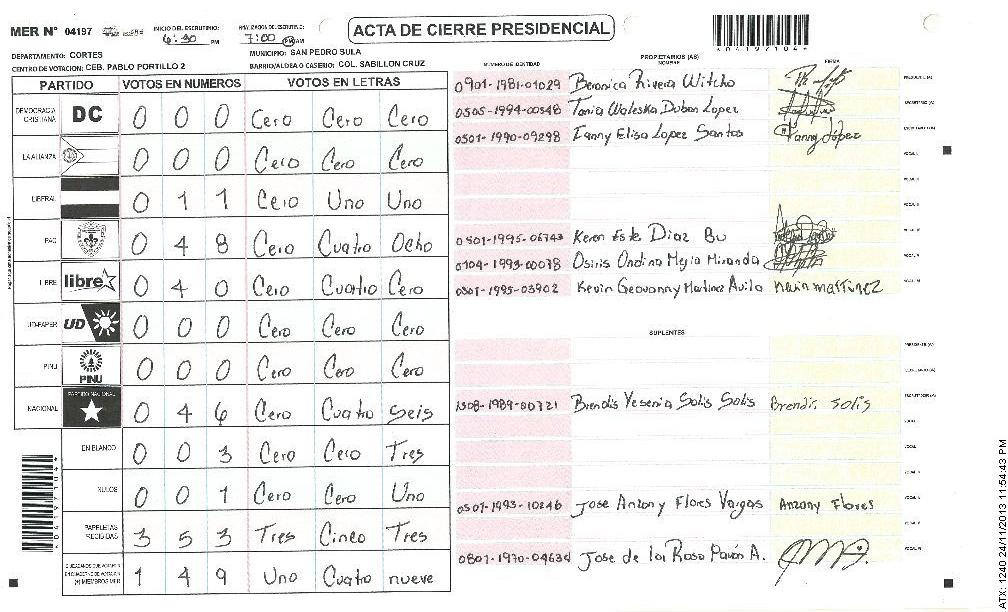 MER N° 04197
INICIO DEL ESCRUTINIO: 6:30 PM
FINALIZACION DE ESCRUTINIO: 7:00 PM AM
ACTA DE CIERRE PRESIDENCIAL
DEPARTAMENTO: CORTES
MUNICIPIO: SAN PEDRO SULA
CENTRO DE VOTACION: CEB. PABLO PORTILLO 2
BARRIO/ALDEA O CASERIO: COL. SABILLON CRUZ
PARTIDO VOTOS EN NUMEROS VOTOS EN LETRAS
DEMOCRACIA CRISTIANA DC 0 0 0 Cero Cero Cero
LA ALIANZA 0 0 0 Cero Cero Cero
LIBERAL 0 1 1 Cero Uno Uno
PAC 0 4 8 Cero Cuatro Ocho
LIBRE libre 0 4 0 Cero Cuatro Cero
UD-FAPER UD 0 0 0 Cero Cero Cero
PINU PINU 0 0 0 Cero Cero Cero
NACIONAL PARTIDO NACIONAL 0 4 6 Cero Cuatro Seis
EN BLANCO 0 0 3 Cero Cero Tres
NULOS 0 0 1 Cero Cero Uno
PAPELETAS RECIBIDAS 3 5 3 Tres Cinco Tres
CIUDADANOS QUE VOTARON EN CUADERNO DE VOTACION (+) MIEMBROS MER 1 4 9 Uno Cuatro nueve
NUMERO DE IDENTIDAD
PROPIETARIOS (AS)
NOMBRE
FIRMA
0901-1981-01029 Beronica Rivera Witcho PRESIDENTE (A)
0505-1994-00548 Tania Waleska Dubon Lopez SECRETARIO (A)
0501-1990-09298 Fanny Elisa Lopez Santos Fanny López ESCRUTADOR (A)
VOCAL I
VOCAL II
VOCAL III
0501-1995-06743 Keren Este Diaz Bu VOCAL IV
0104-1993-00078 Osiris Ondina Mejia Miranda VOCAL V
0501-1995-03902 Kevin Geovanny Martinez Avila Kevin martinez VOCAL VI
SUPLENTES
PRESIDENTE (A)
SECRETARIO (A)
1508-1989-00321 Brendis Yesenia Solis Solis Brendis Solis ESCRUTADOR (A)
0501-1993-10246 Jose Anzony Flores Vargas Anzony Flores
0801-1970-04634 Jose de la Rosa Pavón A.
ATX: 1240.24/11/2013 11:54:43 PM